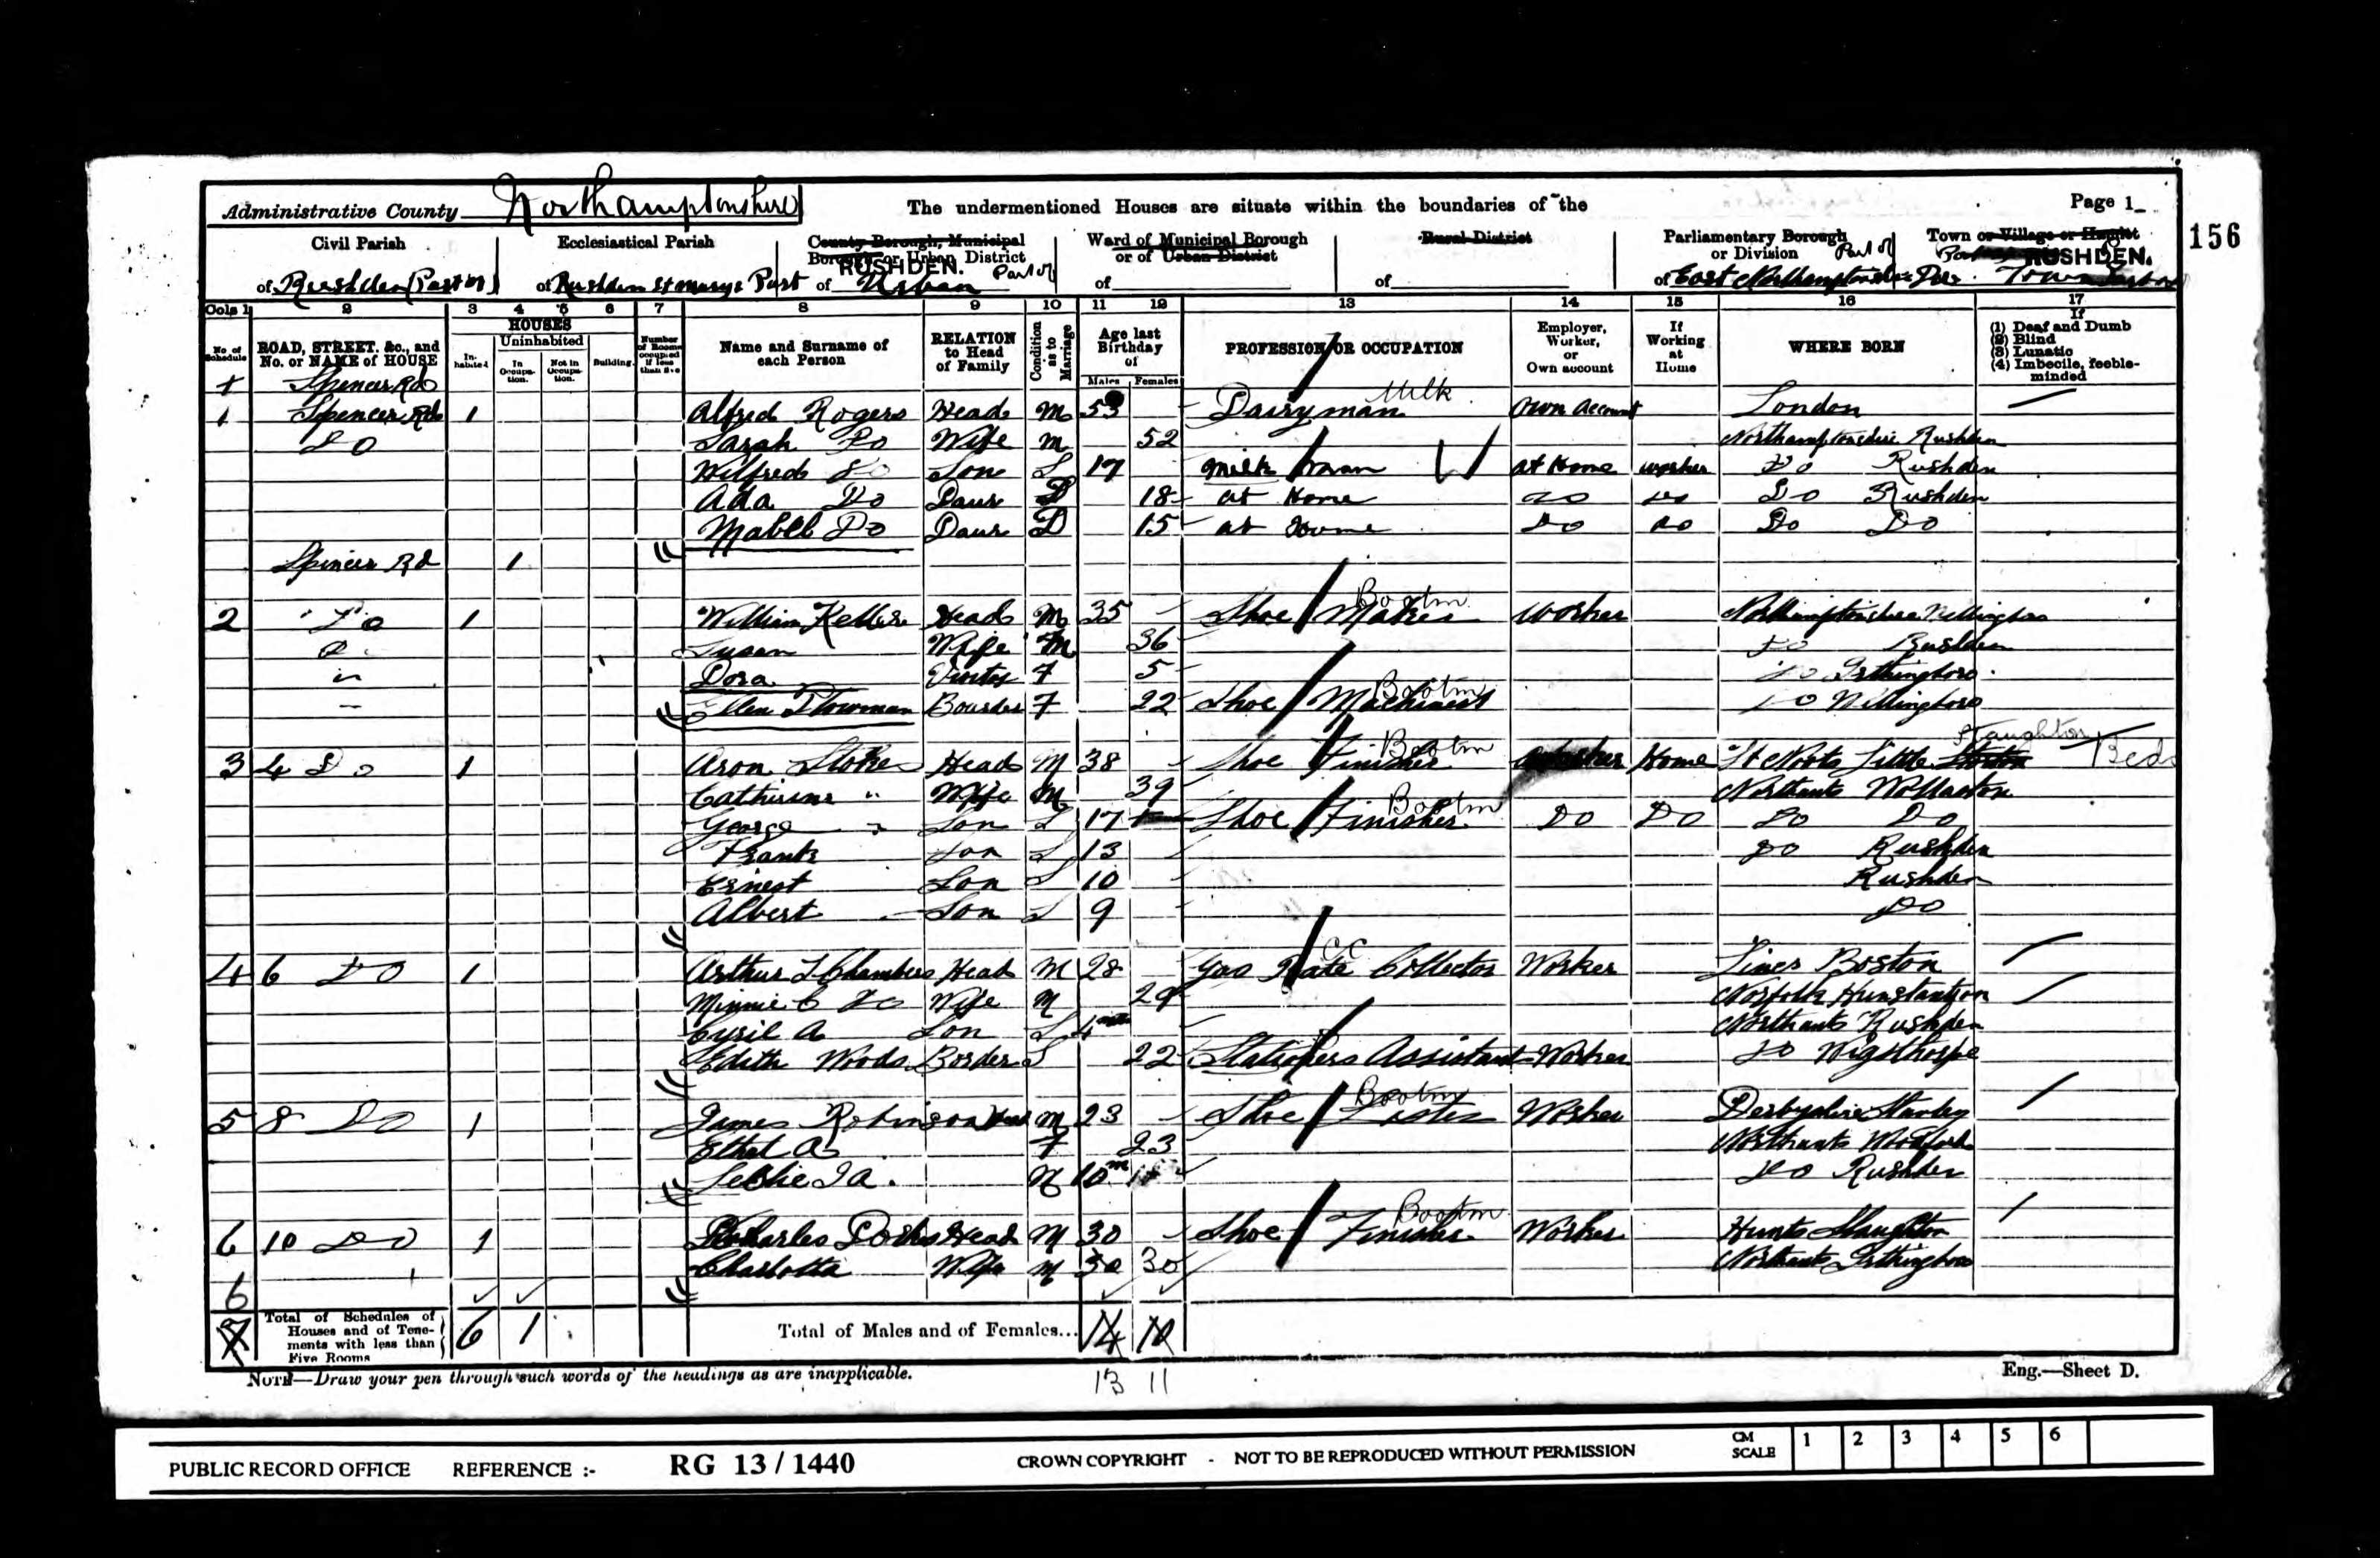 Administrative County Northamptonshire
The undermentioned Houses are situate within the boundaries of the
Page 1
156
Civil Parish
Ecclesiastical Parish
County Borough, Municipal Borough or Urban District
Ward of Municipal Borough or of Urban District
Rural District
Parliamentary Borough or Division Part of
Town or Village or Hamlet
of Rushden (Part of)
of Rushden St Marys Part
of RUSHDEN. Urban Part of
of
of
of East Northamptonshire Div.
Part of RUSHDEN. Town
Cols 1 2 3 4 5 6 7 8 9 10 11 12 13 14 15 16 17
No. of Schedule
ROAD, STREET, &c., and No. or NAME of HOUSE
HOUSES
Inhabited
Uninhabited
In Occupation.
Not in Occupation.
Building.
Number of Rooms occupied if less than five
Name and Surname of each Person
RELATION to Head of Family
Condition as to Marriage
Age last Birthday of
Males Females
PROFESSION OR OCCUPATION
Employer, Worker, or Own account
If Working at Home
WHERE BORN
If (1) Deaf and Dumb (2) Blind (3) Lunatic (4) Imbecile, feeble-minded
Spencer Rd
1 Spencer Rd 1 Alfred Rogers Head M 53 Dairyman Milk own Account London
Do Sarah Do Wife M 52 Northamptonshire Rushden
Wilfred Do Son S 17 Milk man W at Home worker Do Rushden
Ada Do Daur 18 at Home Do Do Do Rushden
Mabel Do Daur 15 at Home Do Do Do Do
Spencer Rd 1
2 Do 1 William Head M 35 Shoe Maker Bootm Worker Northamptonshire
Do Susan Wife M 36 Do Rushden
Dora Visitor F 5 Do Irthingboro
Ellen Plowman Boarder F 22 Shoe Machinist Bootm Do Wellingboro
3 4 Do 1 Aron Stokes Head M 38 Shoe Finisher Bootm Worker Home St Neots Little Staughton Beds
Catherine " Wife M 39 Northants Wollaston
George " Son S 17 Shoe Finisher Bootm Do Do Do Do
Frank Son S 13 Do Rushden
Ernest Son S 10 Rushden
Albert Son S 9 Do
4 6 Do 1 Arthur Chambers Head M 28 Gas Rate Collector CC Worker Lincs Boston
Minnie C Do Wife M 29 Norfolk Hunstanton
Cyril A Son S 4 Northants Rushden
Edith Woods Border S 22 Stationers Assistant Worker Do Wigsthorpe
5 8 Do 1 James Robinson Head M 23 Shoe Bootm Worker Derbyshire
Ethel A F 23 Northants Woodford
Leslie J A. M 10 m Do Rushden
6 10 Do 1 Charles Head M 30 Shoe Finisher Bootm Worker Hunts Staughton
Charlotta Wife M 30 30 Northants Irthingboro
6
7 Total of Schedules of Houses and of Tenements with less than Five Rooms 6 1
Total of Males and of Females... 14 10
13 11
NOTE—Draw your pen through such words of the headings as are inapplicable.
Eng.—Sheet D.
PUBLIC RECORD OFFICE REFERENCE :- RG 13 / 1440 CROWN COPYRIGHT - NOT TO BE REPRODUCED WITHOUT PERMISSION CM SCALE 1 2 3 4 5 6